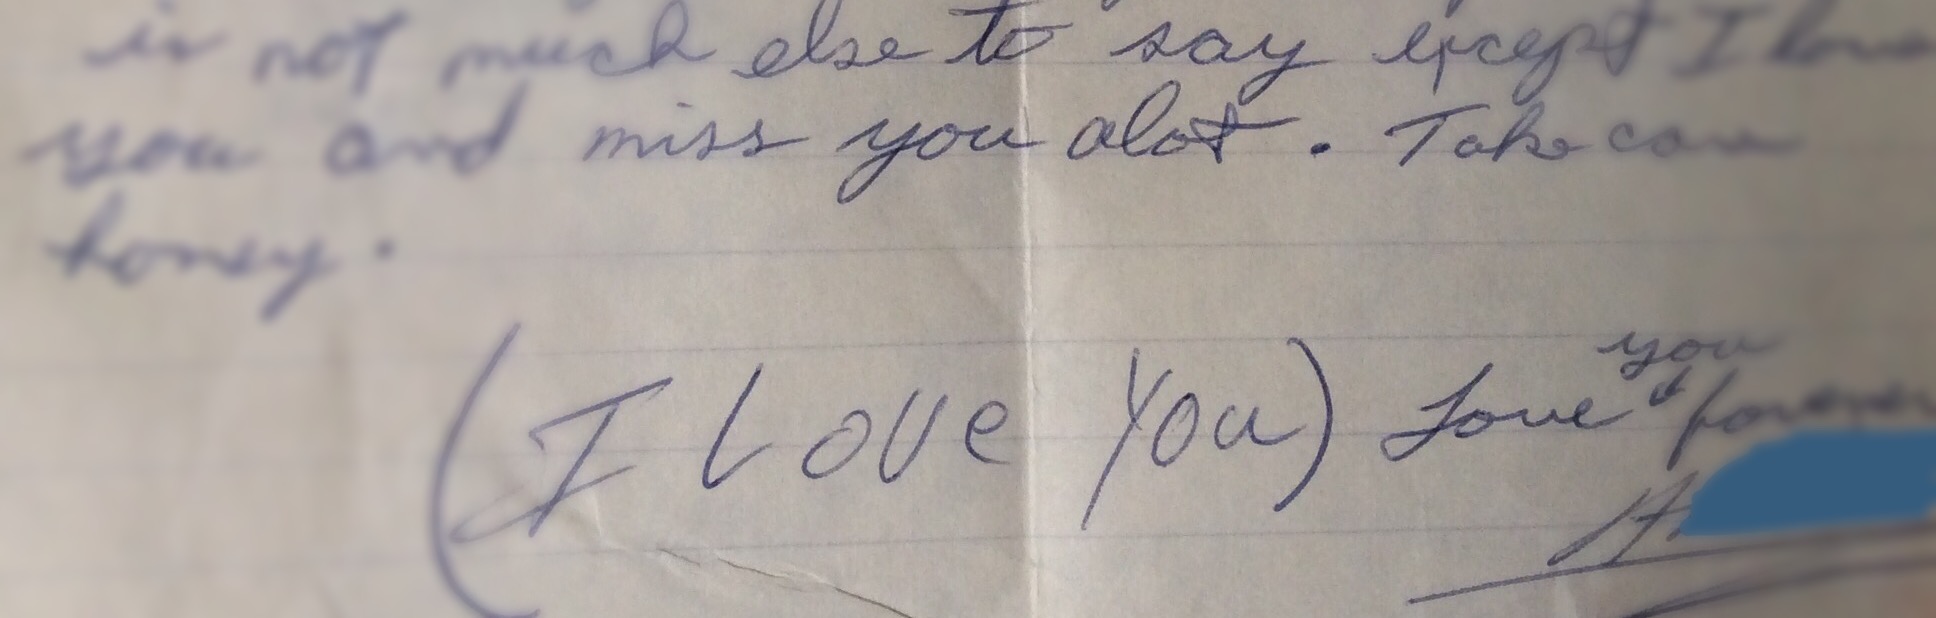 is not much else to say except I love
you and miss you alot. Take care
honey.
(I Love You) Love you forever
A.